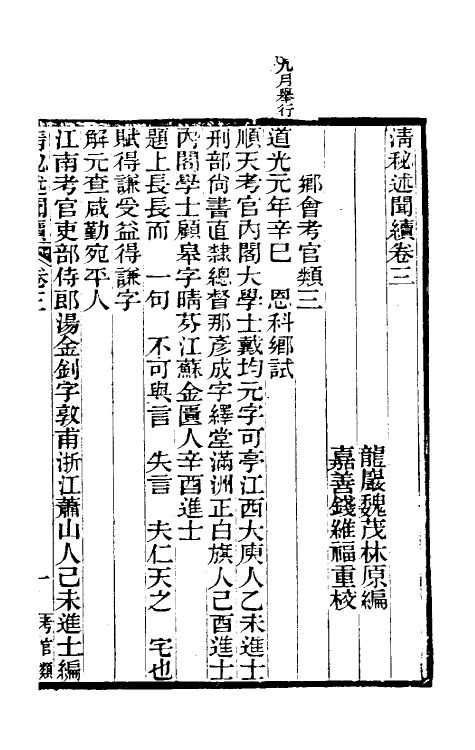 清秘述聞續卷三
龍巖魏茂林原編
嘉善錢維福重校
鄉會考官類三
九月舉行
道光元年辛巳　恩科鄉試
順天考官內閣大學士戴均元字可亭江西大庾人乙未進士
刑部尚書直隸總督那彥成字繹堂滿洲正白旗人己酉進士
內閣學士顧皋字晴芬江蘇金匱人辛酉進士
題上長長而　一句　不可與言　失言　夫仁天之　宅也
賦得謙受益得謙字
解元查咸勤宛平人
江南考官吏部侍郎湯金釗字敦甫浙江蕭山人己未進士編
清秘述聞續　卷三　一　考官類